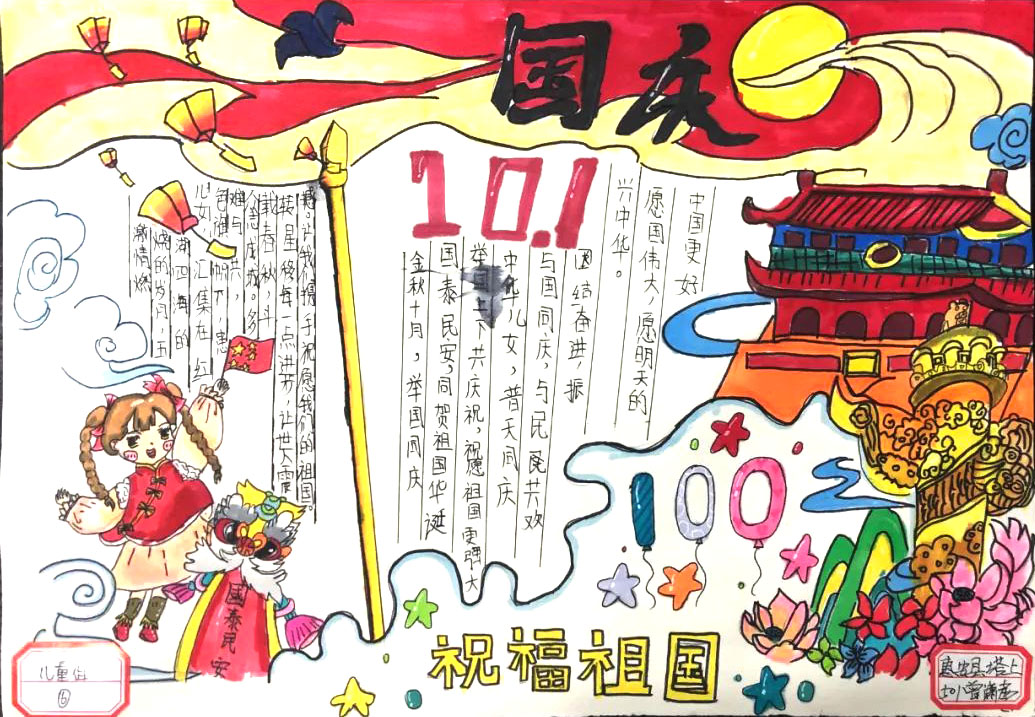 国庆
10.1
激情燃
烧的岁月,五
湖四海的
儿女,汇集在红
色旗帜下,患
难与共,
众志成城。多
载春秋,斗
星移每一点进步,让世人震
撼,让我们携手祝愿我们的祖国。
金秋十月,举国同庆
国泰民安,同贺祖国华诞
举国上下,共庆祝,祝愿祖国更强大
中华儿女,普天同庆
与国同庆,与民共欢
团结奋进,振
兴中华。
愿国伟大,愿明天的
中国更好
100
国泰民安
祝福祖国
儿童组
⑥
惠安县塔上